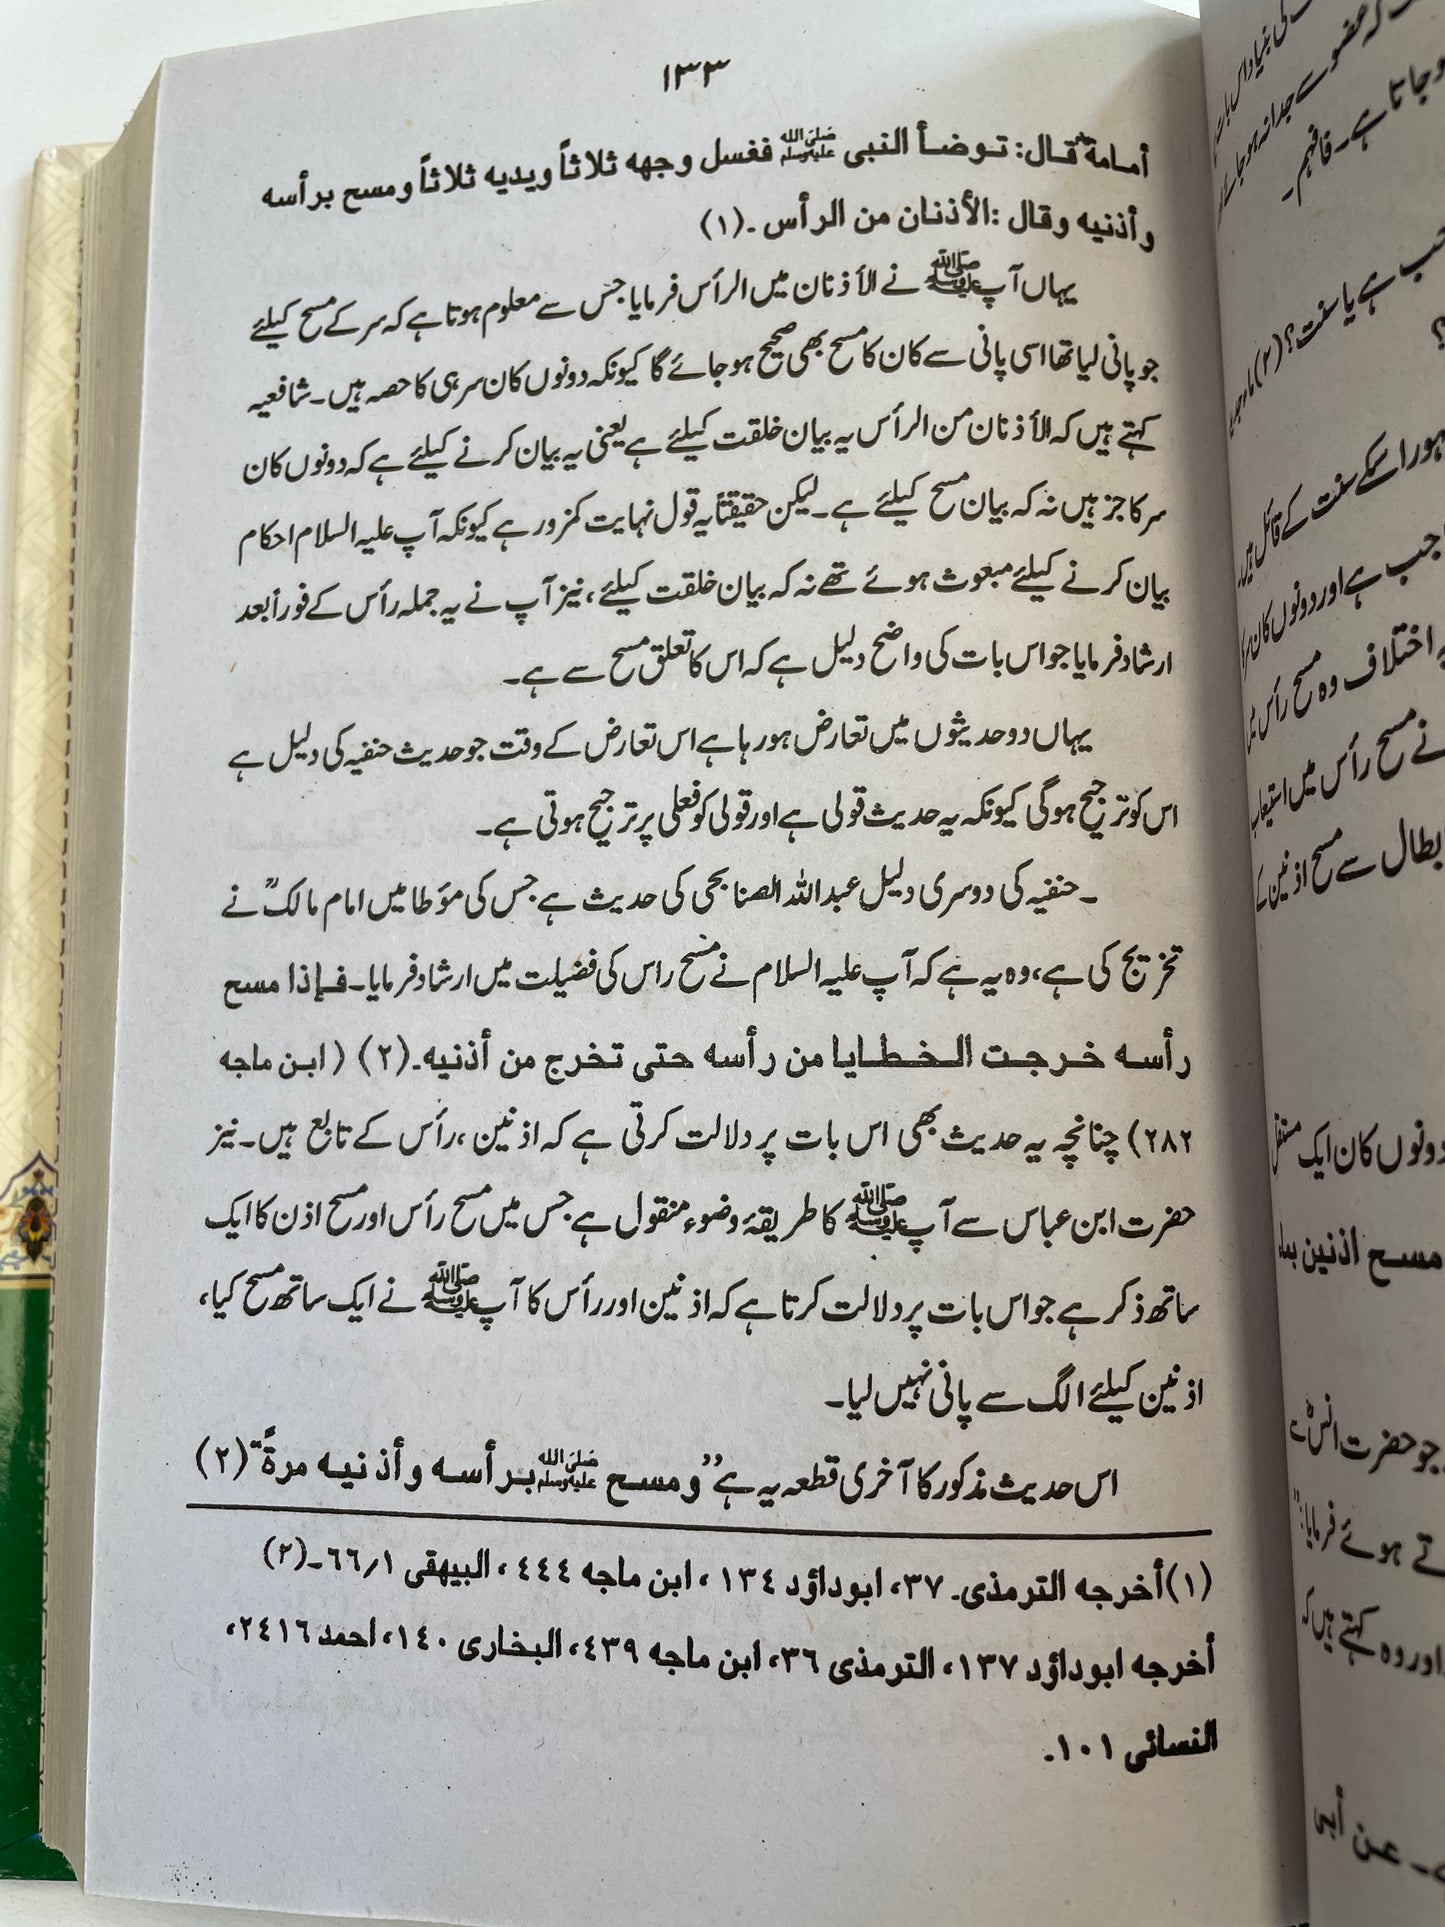 ۱۳۳
أمامةؓ قال: توضأ النبی ﷺ فغسل وجهه ثلاثاً ویدیه ثلاثاً ومسح برأسه
وأذنیه وقال :الأذنان من الرأس ۔(۱)
یہاں آپ ﷺ نے الأذنان میں الرأس فرمایا جس سے معلوم ہوتا ہے کہ سر کے مسح کیلئے
جو پانی لیا تھا اسی پانی سے کان کا مسح بھی صحیح ہو جائے گا کیونکہ دونوں کان سر ہی کا حصہ ہیں۔ شافعیہ
کہتے ہیں کہ الأذنان من الرأس یہ بیان خلقت کیلئے ہے یعنی یہ بیان کرنے کیلئے ہے کہ دونوں کان
سر کا جز ہیں نہ کہ بیان مسح کیلئے ہے۔ لیکن حقیقتاً یہ قول نہایت کمزور ہے کیونکہ آپ علیہ السلام احکام
بیان کرنے کیلئے مبعوث ہوئے تھے نہ کہ بیان خلقت کیلئے، نیز آپ نے یہ جملہ رأس کے فوراً بعد
ارشاد فرمایا جو اس بات کی واضح دلیل ہے کہ اس کا تعلق مسح سے ہے۔
یہاں دو حدیثوں میں تعارض ہو رہا ہے اس تعارض کے وقت جو حدیث حنفیہ کی دلیل ہے
اس کو ترجیح ہوگی کیونکہ یہ حدیث قولی ہے اور قولی کو فعلی پر ترجیح ہوتی ہے۔
۔حنفیہ کی دوسری دلیل عبداللہ الصنابحی کی حدیث ہے جس کی مؤطا میں امام مالکؒ نے
تخریج کی ہے، وہ یہ ہے کہ آپ علیہ السلام نے مسح راس کی فضیلت میں ارشاد فرمایا۔ فإذا مسح
رأسه خرجت الخطایا من رأسه حتی تخرج من أذنیه۔(۲) (ابن ماجه
۲۸۲) چنانچہ یہ حدیث بھی اس بات پر دلالت کرتی ہے کہ اذنین، رأس کے تابع ہیں۔ نیز
حضرت ابن عباس سے آپ ﷺ کا طریقۂ وضوء منقول ہے جس میں مسح رأس اور مسح اذن کا ایک
ساتھ ذکر ہے جو اس بات پر دلالت کرتا ہے کہ اذنین اور رأس کا آپ ﷺ نے ایک ساتھ مسح کیا،
اذنین کیلئے الگ سے پانی نہیں لیا۔
اس حدیث مذکور کا آخری قطعہ یہ ہے ”ومسح ﷺ برأسه وأذنیه مرةً“ (۲)
(۱) أخرجه الترمذی۔ ۳۷، ابوداؤد ۱۳٤ ، ابن ماجه ٤٤٤ ، البیهقی ۱/٦٦۔(۲)
أخرجه ابوداؤد ۱۳۷، الترمذی ۳٦، ابن ماجه ٤۳۹، البخاری ۱٤۰، احمد ۲٤۱٦،
النسائی ۱۰۱۔
وجاتا ہے۔ فافہم۔
جب ہے یا سنت؟ (۲)
اجب ہے اور دونوں کان
اختلاف وہ مسح رأس
نے مسح رأس میں استیعاب
بطال سے مسح اذنین کے
دونوں کان ایک مستقل
مسح اذنین بماء
جو حضرت انسؓ سے
تے ہوئے فرمایا:
اور وہ کہتے ہیں کہ
۔ عن أبی